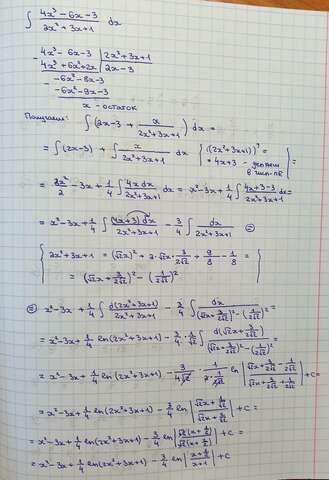 ∫ (4x³ − 6x − 3)/(2x² + 3x + 1) dx
4x³ − 6x − 3 | 2x² + 3x + 1
4x³ + 6x² + 2x | 2x − 3
−6x² − 8x − 3
−6x² − 9x − 3
x − остаток
Получаем: ∫ (2x − 3 + x/(2x² + 3x + 1)) dx =
= ∫ (2x − 3) + ∫ x/(2x² + 3x + 1) dx { (2x² + 3x + 1)' = 4x + 3 − делаем в числ-ле } =
= 2x²/2 − 3x + 1/4 ∫ 4x dx/(2x² + 3x + 1) = x² − 3x + 1/4 ∫ (4x + 3 − 3)/(2x² + 3x + 1) dx =
= x² − 3x + 1/4 ∫ (4x + 3) dx/(2x² + 3x + 1) − 3/4 ∫ dx/(2x² + 3x + 1) =
{ 2x² + 3x + 1 = (√2x)² + 2·√2x·3/(2√2) + 9/8 − 1/8 =
= (√2x + 3/(2√2))² − (1/(2√2))² }
= x² − 3x + 1/4 ∫ d(2x² + 3x + 1)/(2x² + 3x + 1) − 3/4 ∫ dx/((√2x + 3/(2√2))² − (1/(2√2))²) =
= x² − 3x + 1/4 ln(2x² + 3x + 1) − 3/4 · 1/√2 ∫ d(√2x + 3/(2√2))/((√2x + 3/(2√2))² − (1/(2√2))²) =
= x² − 3x + 1/4 ln(2x² + 3x + 1) − 3/(4√2) · 1/(2·1/(2√2)) ln |(√2x + 3/(2√2) − 1/(2√2))/(√2x + 3/(2√2) + 1/(2√2))| + C =
= x² − 3x + 1/4 ln(2x² + 3x + 1) − 3/4 ln |(√2x + 1/√2)/(√2x + 2/√2)| + C =
= x² − 3x + 1/4 ln(2x² + 3x + 1) − 3/4 ln |√2(x + 1/2)/√2(x + 2/2)| + C =
= x² − 3x + 1/4 ln(2x² + 3x + 1) − 3/4 ln |(x + 1/2)/(x + 1)| + C